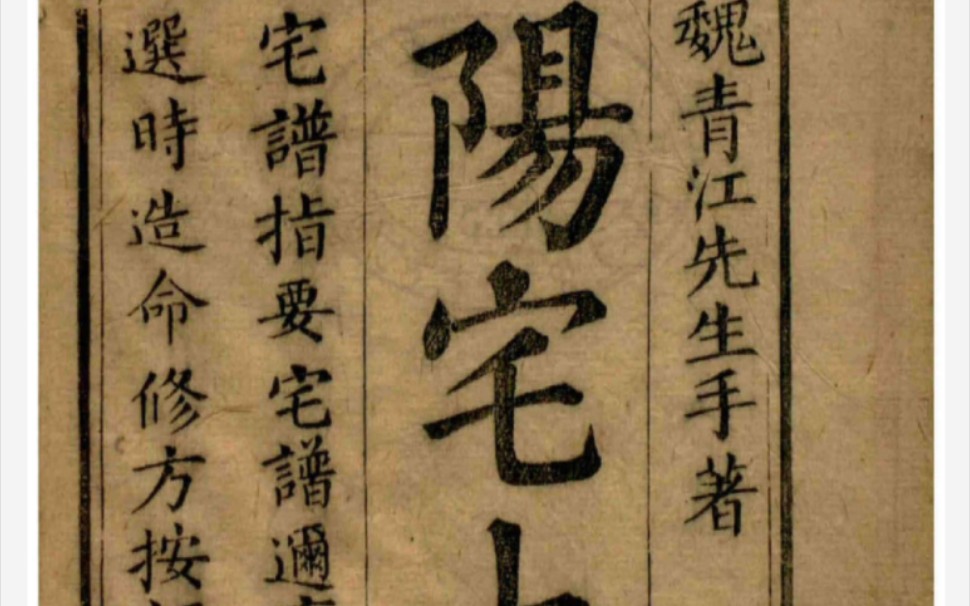 魏青江先生手著
陽宅大
宅譜指要宅譜邇
選時造命修方按